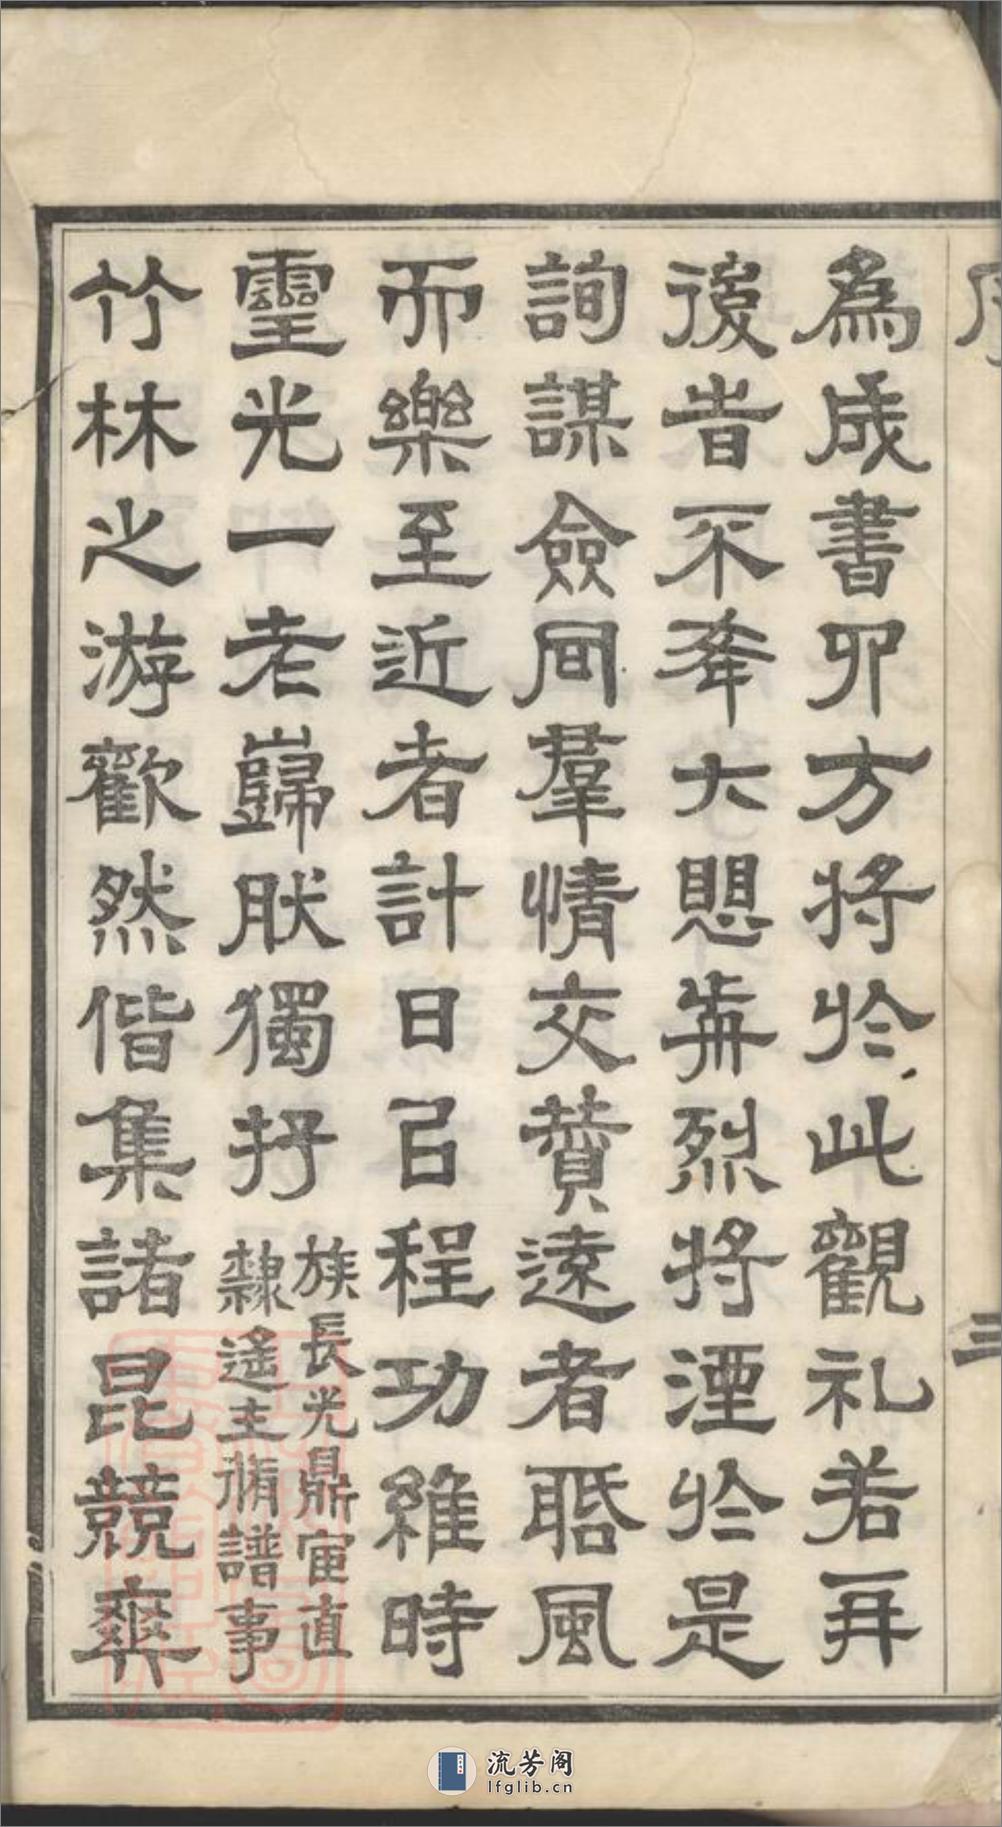 三
為成書卯方將於此觀礼若再
後旹不幸大愳歬烈將湮於是
詢謀僉同羣情交贊遠者䎽風
而樂至近者計日㠯程功維時
靈光一老巋肰獨存族長光鼎寅直
隸遙主脩譜事
竹林之游歡然偕集諸昆競爽
流芳阁
lfglib.cn